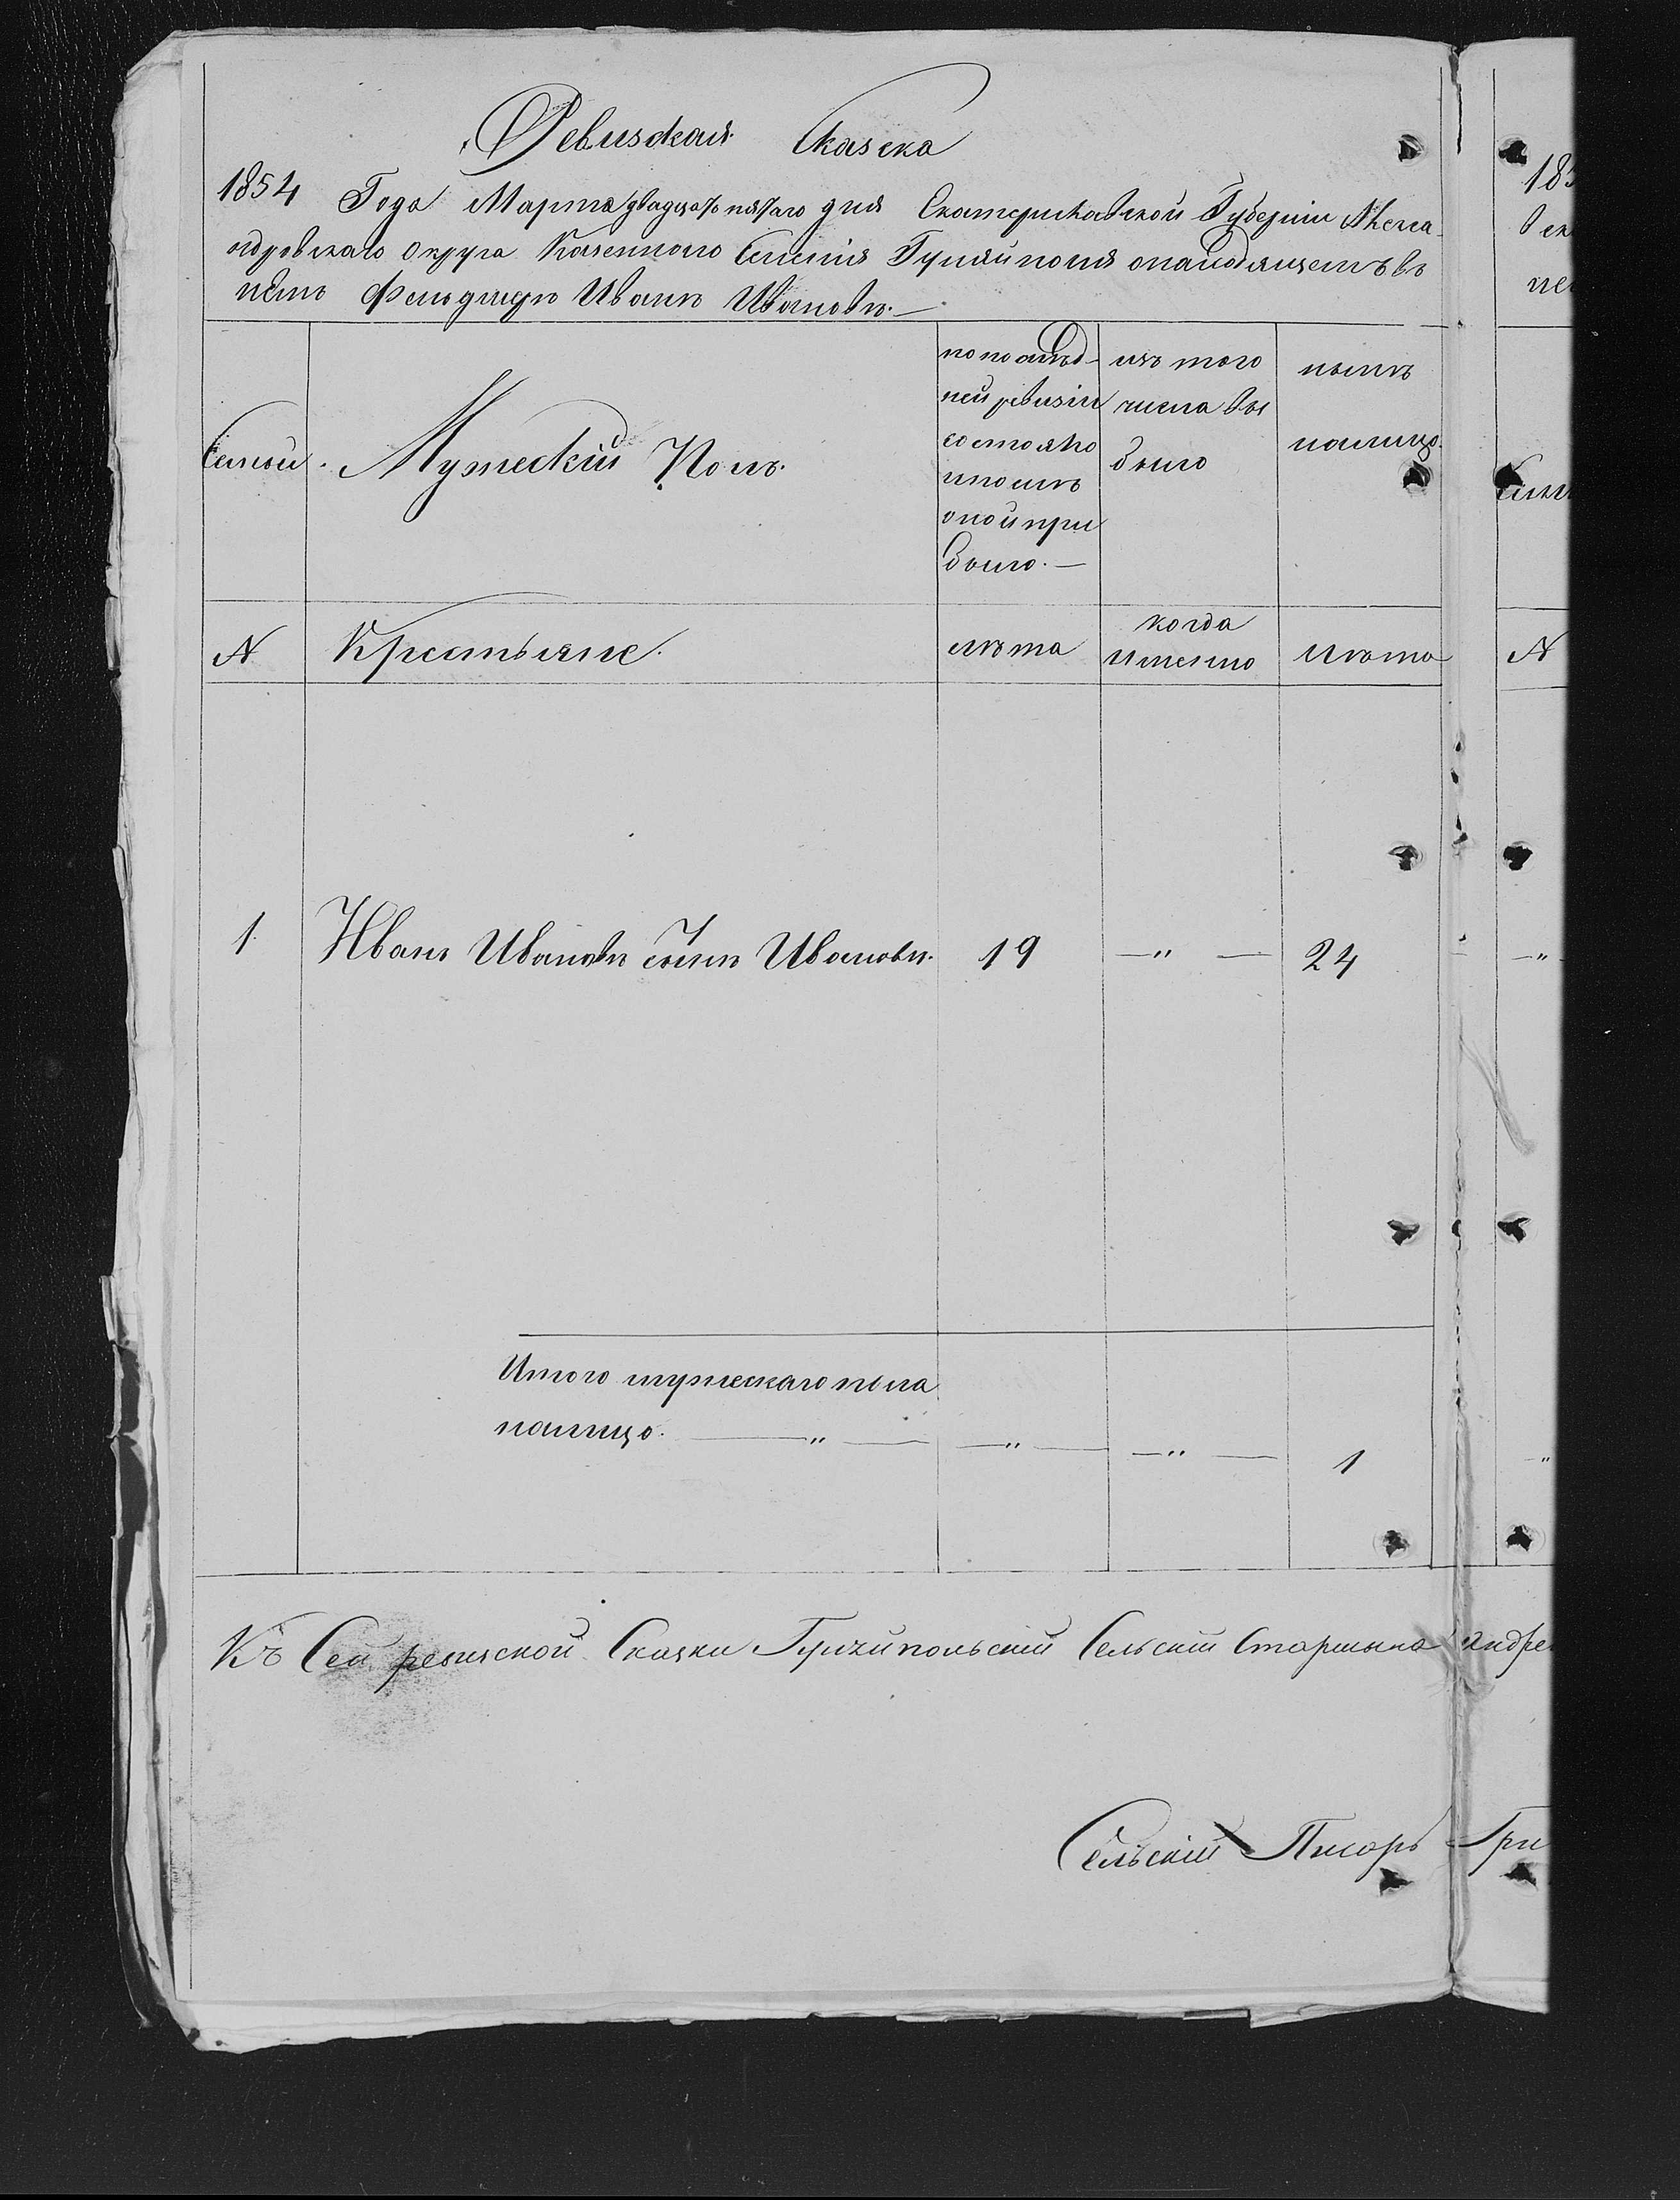 Ревизская Сказска
1854 Года Марта двадцать пятаго дня Екатеринославской Губерніи Алекса-
ндровскаго округа Казеннаго Селенія Гуляйполя о находящемъ въ
немъ Фельдшере Иване Иванове.—
Семьи.
Мужескій Полъ.
по послѣд-
ней ревизіи
состояло
и после
оной при
было.—
изъ того
числа вы
было
ныне
на лицо.
N
Крестьяне.
лета
когда
именно
лета
N
1.
Иванъ Ивановъ сынъ Ивановъ.
19
—"—
24
Итого мужескаго пола
на лицо. —"— —"— —"— 1
Къ Сей ревизской Сказки Гуляйпольский Сельский Старшина Андре
Сельскій Писарь Гри